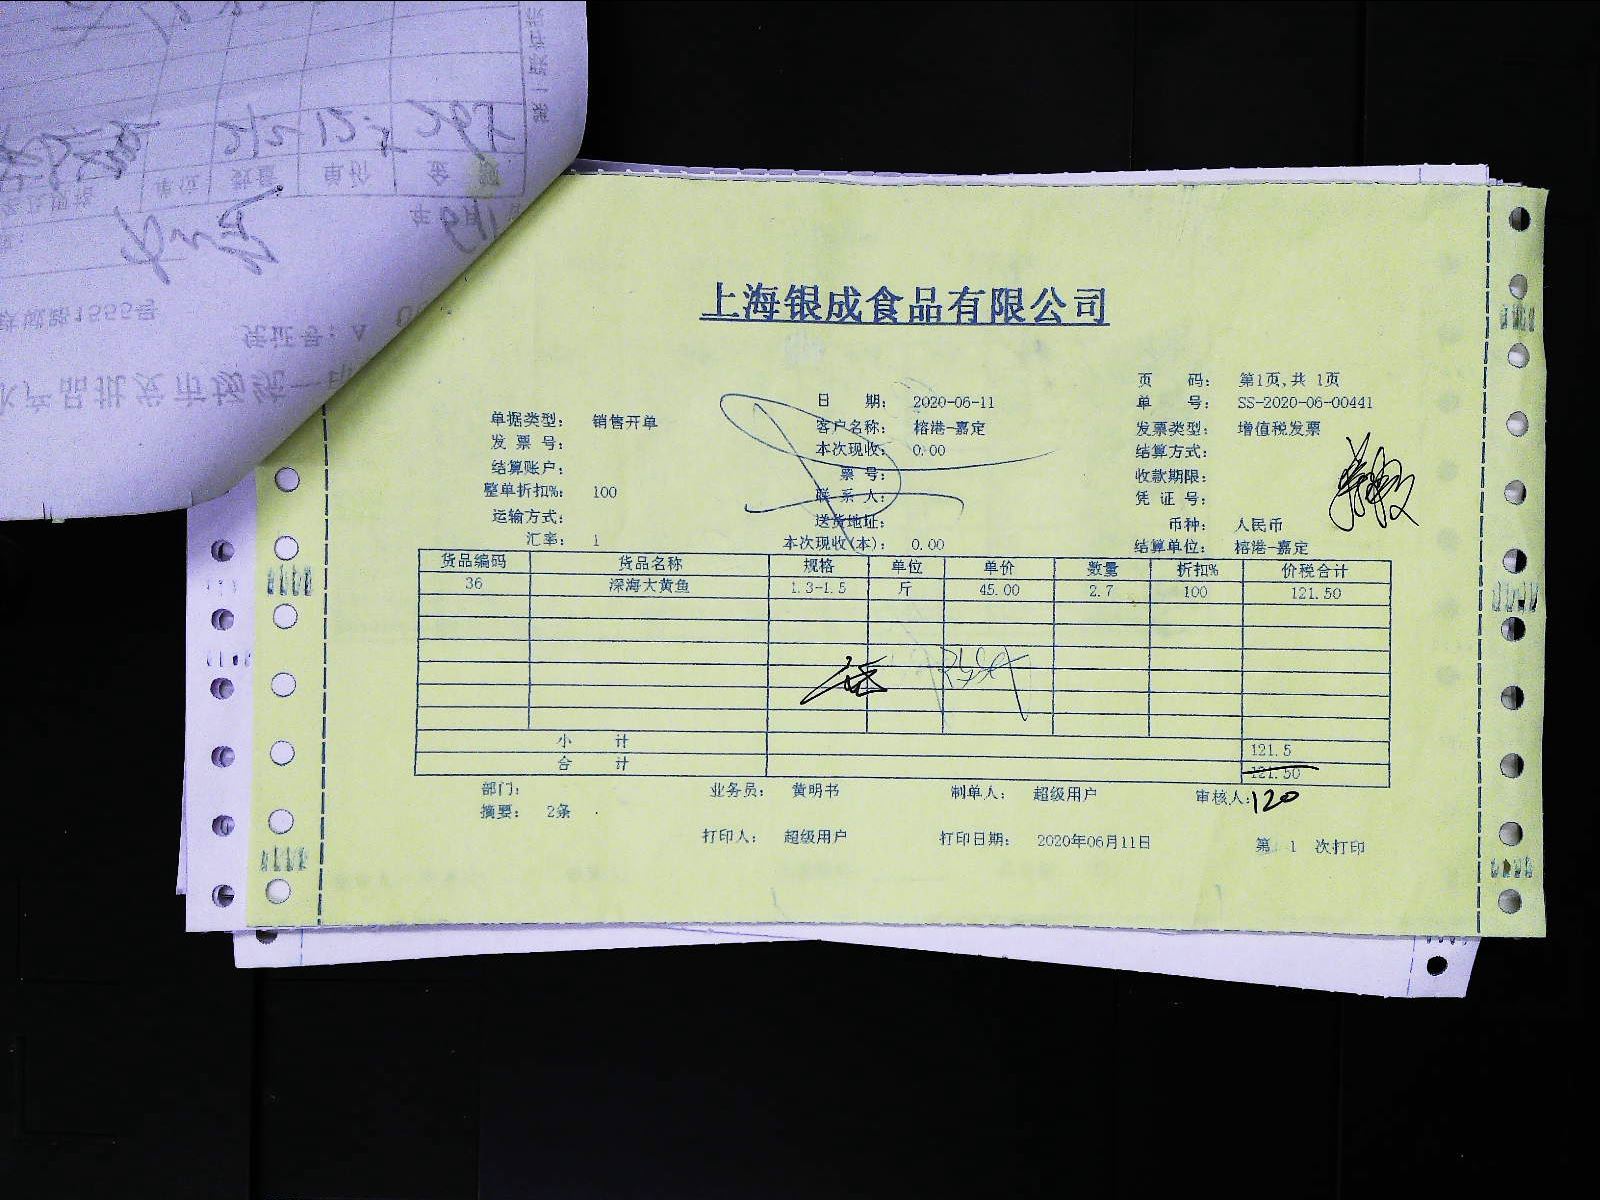 上海银成食品有限公司
页 码: 第1页,共 1页
日 期: 2020-06-11 单 号: SS-2020-06-00441
单据类型: 销售开单 客户名称: 榕港-嘉定 发票类型: 增值税发票
发 票 号: 本次现收: 0.00 结算方式:
结算账户: 票 号: 收款期限:
整单折扣%: 100 联 系 人: 凭 证 号:
运输方式: 送货地址: 币种: 人民币
汇率: 1 本次现收(本): 0.00 结算单位: 榕港-嘉定
货品编码 货品名称 规格 单位 单价 数量 折扣% 价税合计
36 深海大黄鱼 1.3-1.5 斤 45.00 2.7 100 121.50
小 计 121.5
合 计 121.50
部门: 业务员: 黄明书 制单人: 超级用户 审核人: 120
摘要: 2条
打印人: 超级用户 打印日期: 2020年06月11日 第 1 次打印